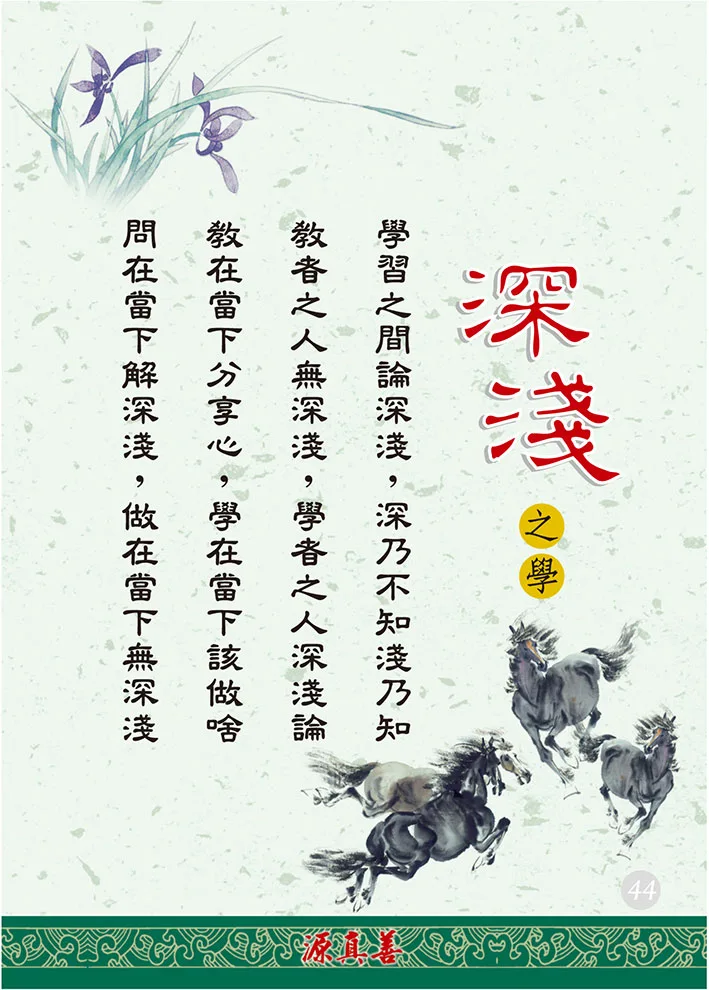 深淺
之學
學習之間論深淺，深乃不知淺乃知
教者之人無深淺，學者之人深淺論
教在當下分享心，學在當下該做啥
問在當下解深淺，做在當下無深淺
44
源真善